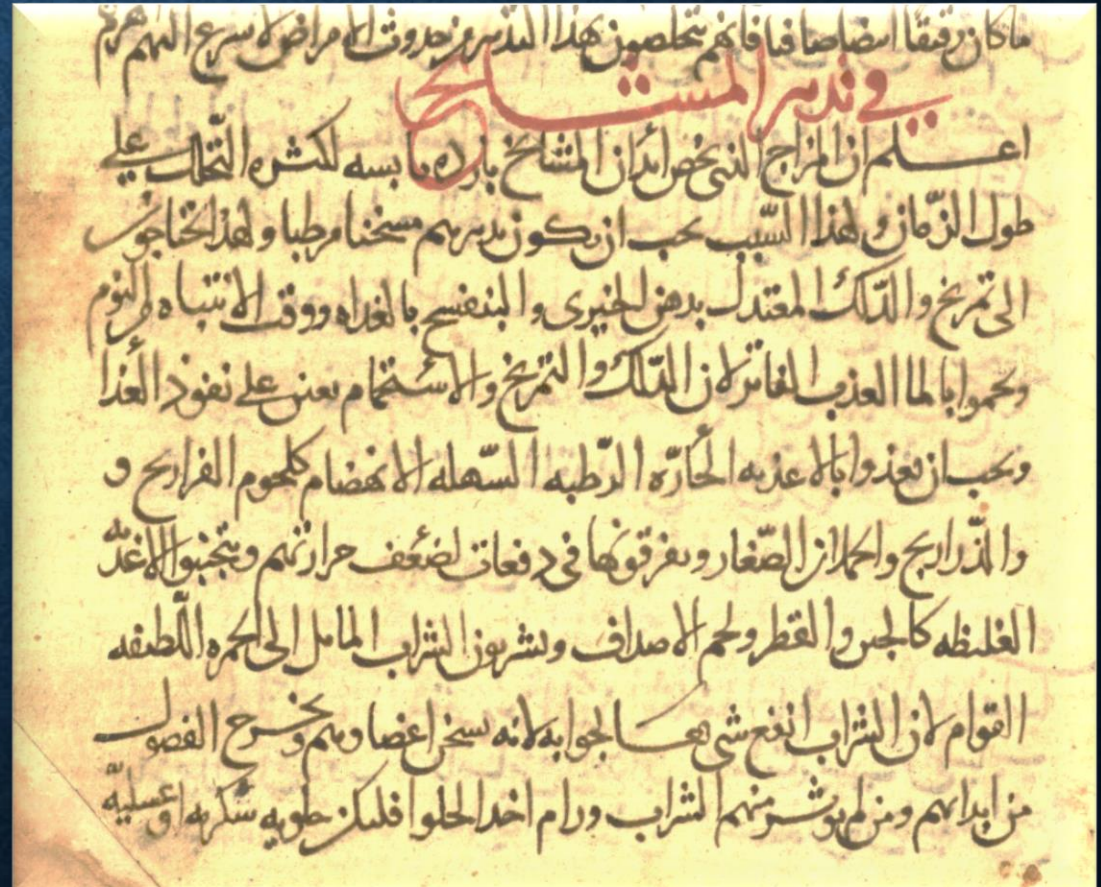 ماكان رقيقا ابيضا صافيا فانهم يتخلصون بهذا التدبير من حدوث الامراض ولا يسرع اليهم هرم
في تدبير المشايخ
اعلم ان المزاج الذي يخص ابدان المشايخ بارده يابسه لكثره التحلل على
طول الزمان ولهذا السبب يجب ان يكون تدبيرهم مسخنا مرطبا ولهذا يحتاجون
الى تمريخ والدلك المعتدل بدهن الخيرى والبنفسج بالغداه ووقت الانتباه من النوم
ويحموا بالما العذب الفاتر لان الدلك والتمريخ والاستحمام يعين على نفوذ الغذا
ويجب ان يغذوا بالاغذيه الحاره الرطبه السهله الانهضام كلحوم الفراريج و
والدراريج واحملان الصغار ويفرقونها في دفعات لضعف حرارتهم ويتجنبوا الاغذيه
الغليظه كالجبن والفطر ولحم الاصداف ويشربون الشراب المايل الى الحمره اللطيفه
القوام لان الشراب انفع شي يعالجوا به لانه يسخن اعضاوهم ويخرج الفضول
من ابدانهم ومن لم يوثر منهم الشراب ورام اخذ الحلوا فليكن حلويه سكريه او عسليه